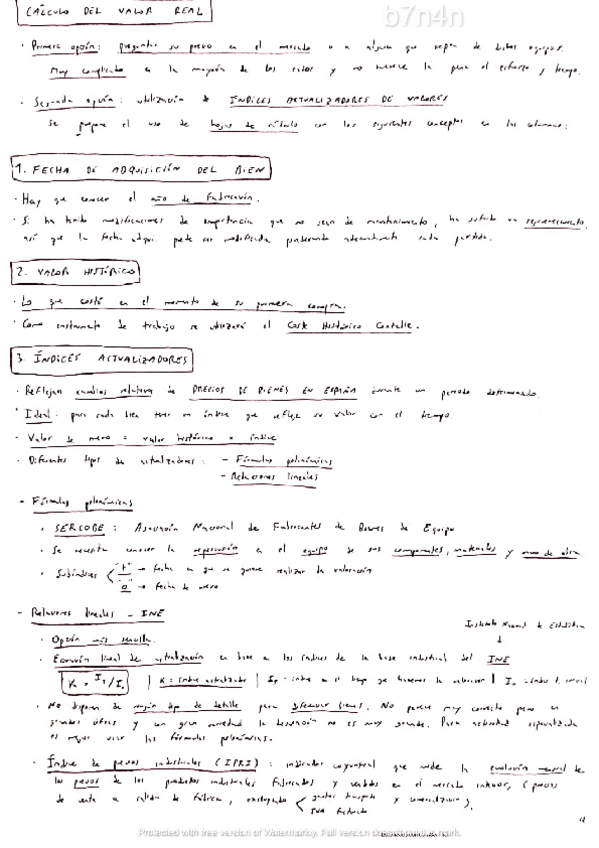 CÁLCULO DEL VALOR REAL
b7n4n
· Primera opción: preguntar su precio en el mercado o a alguien que sepa de dichos equipos.
Muy complicado en la mayoría de los casos y no merece la pena el esfuerzo y tiempo.
· Segunda opción: utilización de ÍNDICES ACTUALIZADORES DE VALORES
Se propone el uso de hojas de cálculo con los siguientes conceptos en las columnas:
1. FECHA DE ADQUISICIÓN DEL BIEN
· Hay que conocer el año de fabricación.
· Si ha tenido modificaciones de importancia que no sean de mantenimiento, ha sufrido un rejuvenecimiento,
así que la fecha adqui. puede ser modificada ponderando adecuadamente cada partida.
2. VALOR HISTÓRICO
· Lo que costó en el momento de su primera compra.
· Como instrumento de trabajo se utilizará el Coste Histórico Contable.
3. ÍNDICES ACTUALIZADORES
· Reflejan cambios relativos de PRECIOS DE BIENES EN ESPAÑA durante un periodo determinado
· Ideal: para cada bien tener un índice que refleje su valor con el tiempo
· Valor de nuevo = valor histórico x índice
· Diferentes tipos de actualizadores: - Fórmulas polinómicas
- Relaciones lineales
- Fórmulas polinómicas
· SERCOBE: Asociación Nacional de Fabricantes de Bienes de Equipo
· Se necesita conocer la repercusión en el equipo de sus componentes, materiales y mano de obra
· Subíndices "t" → fecha en que se quiere realizar la valoración
"o" → fecha de nuevo
- Relaciones lineales - INE
Instituto Nacional de Estadística
· Opción más sencilla.
· Ecuación lineal de actualización en base a los índices de la base industrial del INE
K = It/Io | K = índice actualizador | It - índice en el tiempo que hacemos la valoración | Io - índice t. inicial
· No disponen de ningún tipo de detalle para diferenciar bienes. No parece muy correcto pero en
grandes cifras y un gran inmovilizado la desviación no es muy grande. Para actividad especializada
es mejor usar las fórmulas polinómicas.
· Índice de precios industriales (IPRI): indicador coyuntural que mide la evolución mensual de
los precios de los productos industriales fabricados y vendidos en el mercado interior, (precios
de venta a salida de fábrica, excluyendo gastos transporte y comercialización).
IVA facturado
Protected with free version of Watermarkly. Full version doesn't put this mark.